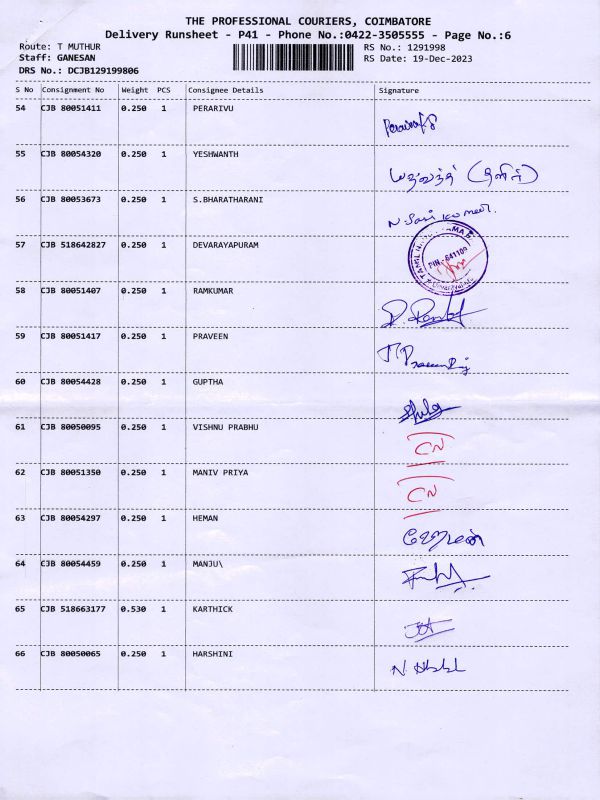 THE PROFESSIONAL COURIERS, COIMBATORE
Delivery Runsheet - P41 - Phone No.:0422-3505555 - Page No.:6
Route: T MUTHUR RS No.: 1291998
Staff: GANESAN RS Date: 19-Dec-2023
DRS No.: DCJB129199806
S No Consignment No Weight PCS Consignee Details Signature
54 CJB 80051411 0.250 1 PERARIVU
55 CJB 80054320 0.250 1 YESHWANTH
56 CJB 80053673 0.250 1 S.BHARATHARANI
N. Sasi kumar.
57 CJB 518642827 0.250 1 DEVARAYAPURAM
PIN - 641109
58 CJB 80051407 0.250 1 RAMKUMAR
59 CJB 80051417 0.250 1 PRAVEEN
60 CJB 80054428 0.250 1 GUPTHA
61 CJB 80050095 0.250 1 VISHNU PRABHU
CN
62 CJB 80051350 0.250 1 MANIV PRIYA
CN
63 CJB 80054297 0.250 1 HEMAN
64 CJB 80054459 0.250 1 MANJU\
65 CJB 518663177 0.530 1 KARTHICK
66 CJB 80050065 0.250 1 HARSHINI